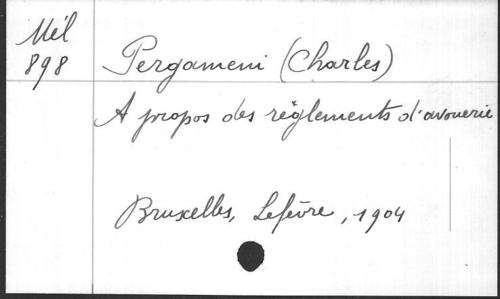 Mél
898
Pergameni (Charles)
A propos des règlements d'avouerie
Bruxelles, Lefèvre, 1904